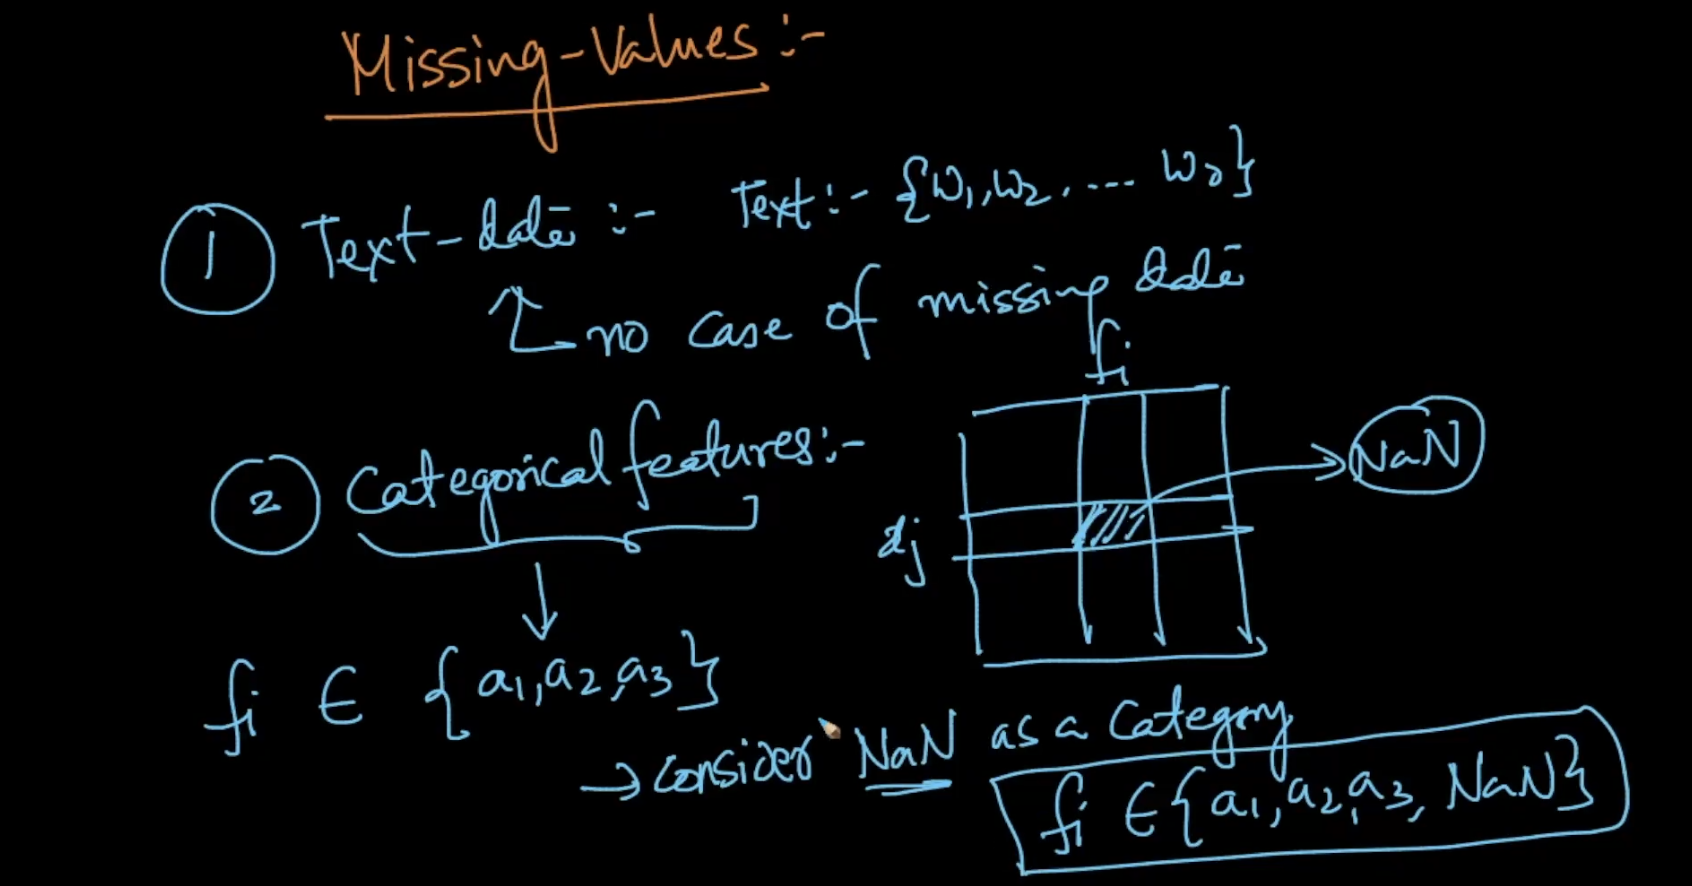 Missing-Values:-
1 Text-data :- Text:- {w1, w2, .... wr}
no case of missing data
fi
2 Categorical features:-
NaN
dj
fi ∈ {a1, a2, a3}
→ consider NaN as a Category
fi ∈ {a1, a2, a3, NaN}